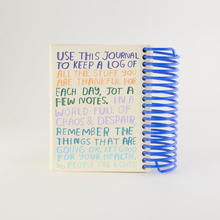 USE THIS JOURNAL
TO KEEP A LOG OF
ALL THE STUFF YOU
ARE THANKFUL FOR
EACH DAY, JOT A
FEW NOTES. IN A
WORLD FULL OF
CHAOS & DESPAIR
REMEMBER THE
THINGS THAT ARE
GOING OK. IT'S GOOD
FOR YOUR HEALTH,
PEOPLE